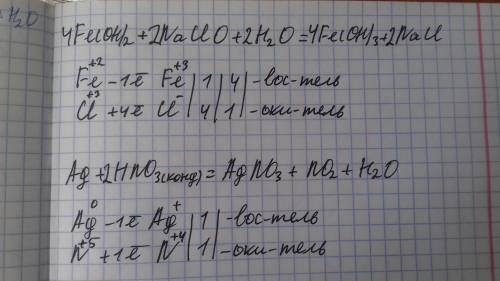 H₂O
4Fe(OH)₂ + 2NaClO + 2H₂O = 4Fe(OH)₃ + 2NaCl
Fe⁺² - 1ē Fe⁺³ | 1 | 4 | - вос-тель
Cl⁺³ + 4ē Cl⁻ | 4 | 1 | - оки-тель
Ag + 2HNO₃(конц) = AgNO₃ + NO₂ + H₂O
Ag⁰ - 1ē Ag⁺ | 1 | - вос-тель
N⁺⁵ + 1ē N⁺⁴ | 1 | - оки-тель